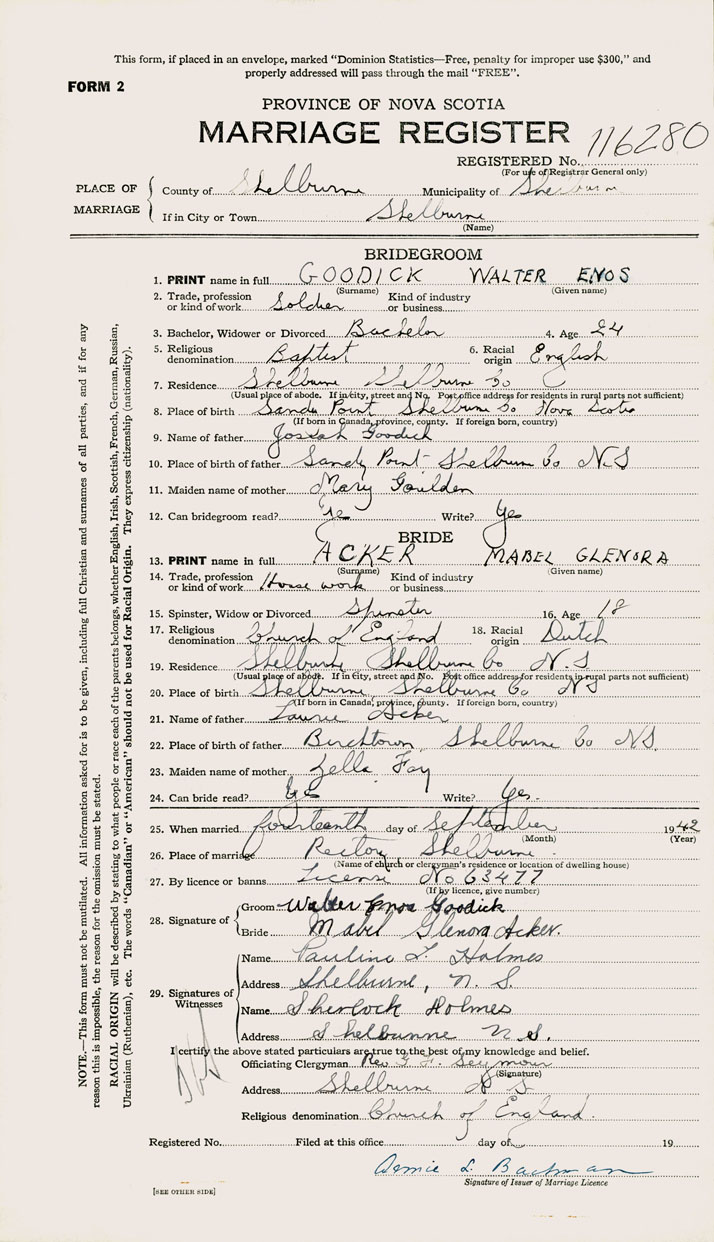 This form, if placed in an envelope, marked "Dominion Statistics—Free, penalty for improper use $300," and
properly addressed will pass through the mail "FREE".
FORM 2
PROVINCE OF NOVA SCOTIA
MARRIAGE REGISTER 116280
REGISTERED No.
(For use of Registrar General only)
PLACE OF MARRIAGE
County of Shelburne Municipality of Shelburn
If in City or Town Shelburne
(Name)
BRIDEGROOM
1. PRINT name in full GOODICK WALTER ENOS
(Surname) (Given name)
2. Trade, profession or kind of work Soldier Kind of industry or business
3. Bachelor, Widower or Divorced Bachelor 4. Age 24
5. Religious denomination Baptist 6. Racial origin English
7. Residence Shelburne Shelburne Co
(Usual place of abode. If in city, street and No. Post office address for residents in rural parts not sufficient)
8. Place of birth Sandy Point Shelburne Co Nova Scotia
(If born in Canada, province, county. If foreign born, country)
9. Name of father Josiah Goodick
10. Place of birth of father Sandy Point Shelburne Co N.S
11. Maiden name of mother Mary Goulden
12. Can bridegroom read? Yes Write? Yes
BRIDE
13. PRINT name in full ACKER MABEL GLENORA
(Surname) (Given name)
14. Trade, profession or kind of work House work Kind of industry or business
15. Spinster, Widow or Divorced Spinster 16. Age 18
17. Religious denomination Church of England 18. Racial origin Dutch
19. Residence Shelburne Shelburne Co N.S
(Usual place of abode. If in city, street and No. Post office address for residents in rural parts not sufficient)
20. Place of birth Shelburne, Shelburne Co NS
(If born in Canada, province, county. If foreign born, country)
21. Name of father Laurie Acker
22. Place of birth of father Birchtown, Shelburne Co N.S.
23. Maiden name of mother Zella Fay
24. Can bride read? Yes Write? Yes.
25. When married fourteenth day of September 1942
(Month) (Year)
26. Place of marriage Rectory Shelburne
(Name of church or clergyman's residence or location of dwelling house)
27. By licence or banns License No 63477
(If by licence, give number)
28. Signature of
Groom Walter Enos Goodick
Bride Mabel Glenora Acker.
29. Signatures of Witnesses
Name Pauline L. Holmes
Address Shelburne, N. S.
Name Sherlock Holmes
Address Shelburne N.S.
I certify the above stated particulars are true to the best of my knowledge and belief.
Officiating Clergyman Rev G. F. Seymour
(Signature)
Address Shelburne N S
Religious denomination Church of England.
Registered No. Filed at this office day of 19
L. Bachman
Signature of Issuer of Marriage Licence
[SEE OTHER SIDE]
NOTE.—This form must not be mutilated. All information asked for is to be given, including full Christian and surnames of all parties, and if for any
reason this is impossible, the reason for the omission must be stated.
RACIAL ORIGIN will be described by stating to what people or race each of the parents belongs, whether English, Irish, Scottish, French, German, Russian,
Ukrainian (Ruthenian), etc. The words "Canadian" or "American" should not be used for Racial Origin. They express citizenship (nationality).